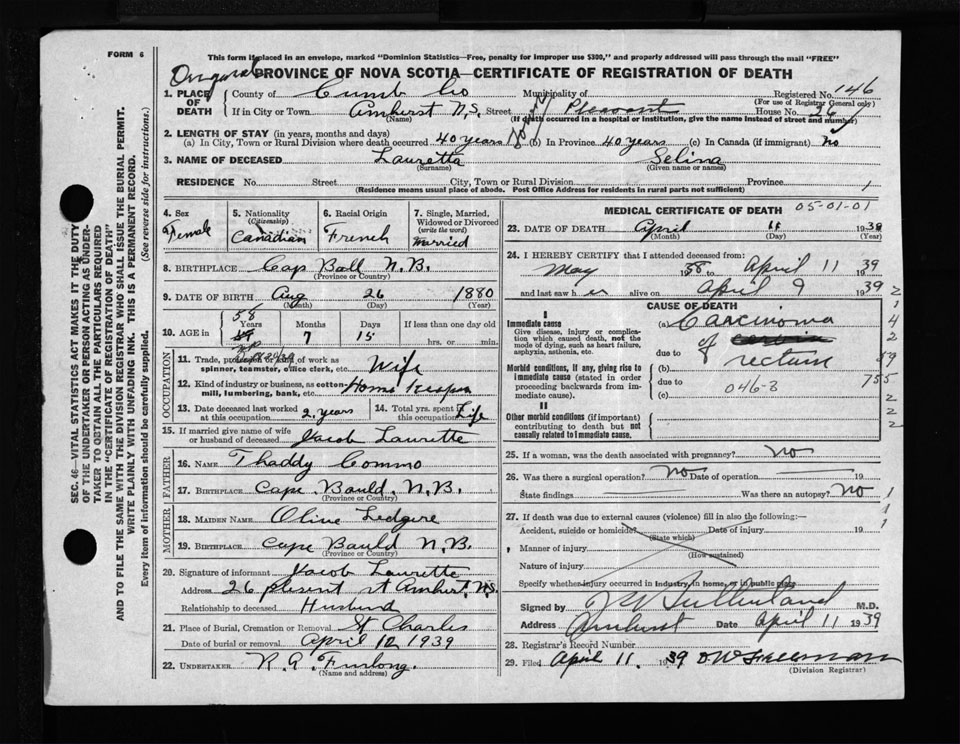 FORM 6
This form if placed in an envelope, marked "Dominion Statistics—Free, penalty for improper use $300," and properly addressed will pass through the mail "FREE"
PROVINCE OF NOVA SCOTIA—CERTIFICATE OF REGISTRATION OF DEATH
1. PLACE OF DEATH
County of Cumb Co Municipality of Registered No. 146
(For use of Registrar General only)
If in City or Town Amherst N.S. Street Pleasant House No. 26
(Name) (If death occurred in a hospital or institution, give the name instead of street and number)
2. LENGTH OF STAY (in years, months and days)
(a) In City, Town or Rural Division where death occurred 40 years (b) In Province 40 years (c) In Canada (if immigrant) No
3. NAME OF DECEASED Lauretta Selina
(Surname) (Given name or names)
RESIDENCE No. Street City, Town or Rural Division Province 1
(Residence means usual place of abode. Post Office Address for residents in rural parts not sufficient)
4. Sex Female
5. Nationality (Citizenship) Canadian
6. Racial Origin French
7. Single, Married, Widowed or Divorced (write the word) Married
8. BIRTHPLACE Cap Ball N.B.
(Province or Country)
9. DATE OF BIRTH Aug 26 1880
(Month) (Day) (Year)
10. AGE in 58 Years 7 Months 15 Days If less than one day hrs. or min.
OCCUPATION
11. Trade, profession or kind of work as spinner, teamster, office clerk, etc. Wife
12. Kind of industry or business, as cotton-mill, lumbering, bank, etc. Home keeper
13. Date deceased last worked at this occupation 2 years
14. Total yrs. spent in this occupation Life
15. If married give name of wife or husband of deceased Jacob Laurette
FATHER
16. NAME Thaddy Commo
17. BIRTHPLACE Cape Bauld N.B.
(Province or Country)
MOTHER
18. MAIDEN NAME Olive Ledgere
19. BIRTHPLACE Cape Bauld N.B.
(Province or Country)
20. Signature of informant Jacob Laurette
Address 26 plesent st Amherst N.S.
Relationship to deceased Husband
21. Place of Burial, Cremation or Removal St Charles
Date of burial or removal April 12 1939
22. UNDERTAKER R. A. Furlong.
(Name and address)
MEDICAL CERTIFICATE OF DEATH 05-01-01
23. DATE OF DEATH April 11 1939
(Month) (Day) (Year)
24. I HEREBY CERTIFY that I attended deceased from:
May 1938 to April 11 1939
and last saw her alive on April 9 1939
CAUSE OF DEATH
I
Immediate cause
Give disease, injury or complication which caused death, not the mode of dying, such as heart failure, asphyxia, asthenia, etc.
(a) Carcinoma of
due to
Morbid conditions, if any, giving rise to immediate cause (stated in order proceeding backwards from immediate cause).
(b) rectum
due to
(c) 046-3
II
Other morbid conditions (if important) contributing to death but not causally related to immediate cause.
2
1
4
2
2
59
755
2
2
2
25. If a woman, was the death associated with pregnancy? No
26. Was there a surgical operation? No Date of operation 19
State findings Was there an autopsy? No
1
1
1
27. If death was due to external causes (violence) fill in also the following:—
Accident, suicide or homicide? Date of injury 19
(State which)
Manner of injury
(How sustained)
Nature of injury
Specify whether injury occurred in industry, in home, or in public place
Signed by J W Sutherland M.D.
Address Amherst Date April 11 1939
28. Registrar's Record Number
29. Filed April 11. 1939
(Division Registrar)
SEC. 46—VITAL STATISTICS ACT MAKES IT THE DUTY
OF THE UNDERTAKER OR PERSON ACTING AS UNDER-
TAKER TO OBTAIN ALL THE PARTICULARS REQUIRED
IN THE "CERTIFICATE OF REGISTRATION OF DEATH"
AND TO FILE THE SAME WITH THE DIVISION REGISTRAR WHO SHALL ISSUE THE BURIAL PERMIT.
WRITE PLAINLY WITH UNFADING INK. THIS IS A PERMANENT RECORD.
Every item of information should be carefully supplied. (See reverse side for instructions.)